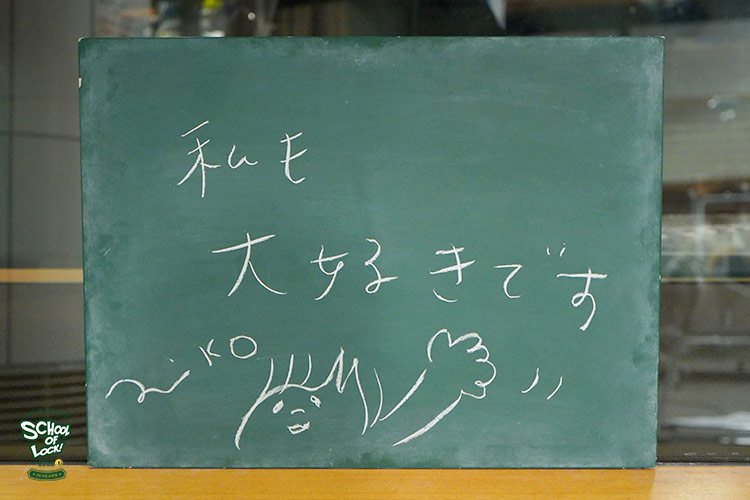 私も
大好きです
KO
SCHOOL
OF
LOCK!